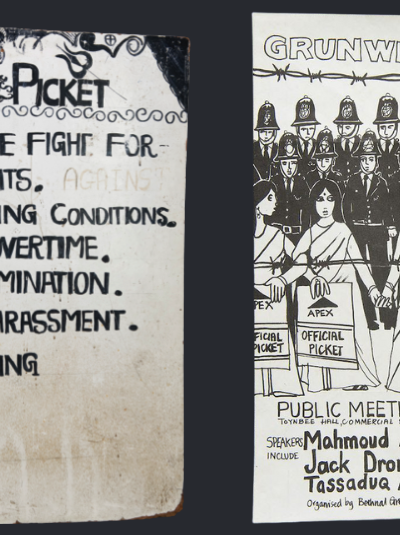 PICKET
E FIGHT FOR-
TS. AGAINST
ING CONDITIONS.
VERTIME.
MINATION.
ARASSMENT.
ING
GRUNWI
APEX
OFFICIAL
PICKET
PEX
FICIAL
PICKET
PUBLIC MEETI
TOYNBEE HALL, COMMERCIAL
SPEAKERS INCLUDE
Mahmoud A
Jack Dron
Tassaduq A
Organised by Bethnal Gre